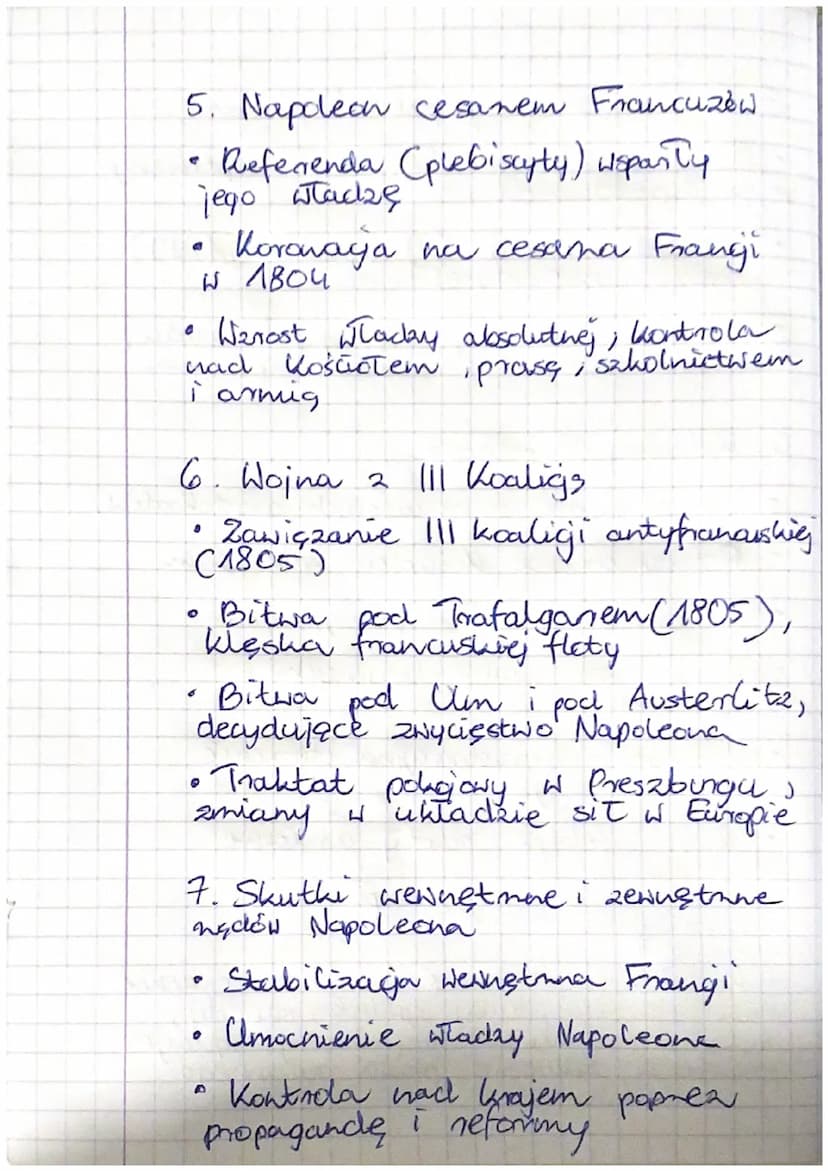 5. Napoleon cesarzem Francuzów
• Referenda (plebiscyty) wsparły
jego władzę
• Koronacja na cesarza Francji
w 1804
• Wzrost władzy absolutnej, kontrola
nad Kościołem, prasą, szkolnictwem
i armią
6. Wojna z III Koalicją
• Zawiązanie III koalicji antyfrancuskiej
(1805)
• Bitwa pod Trafalgarem (1805),
klęska francuskiej floty
• Bitwa pod Ulm i pod Austerlitz,
decydujące zwycięstwo Napoleona
• Traktat pokojowy w Preszburgu,
zmiany w układzie sił w Europie
7. Skutki wewnętrzne i zewnętrzne
rządów Napoleona
• Stabilizacja wewnętrzna Francji
• Umocnienie władzy Napoleona
• Kontrola nad krajem poprzez
propagandę i reformy